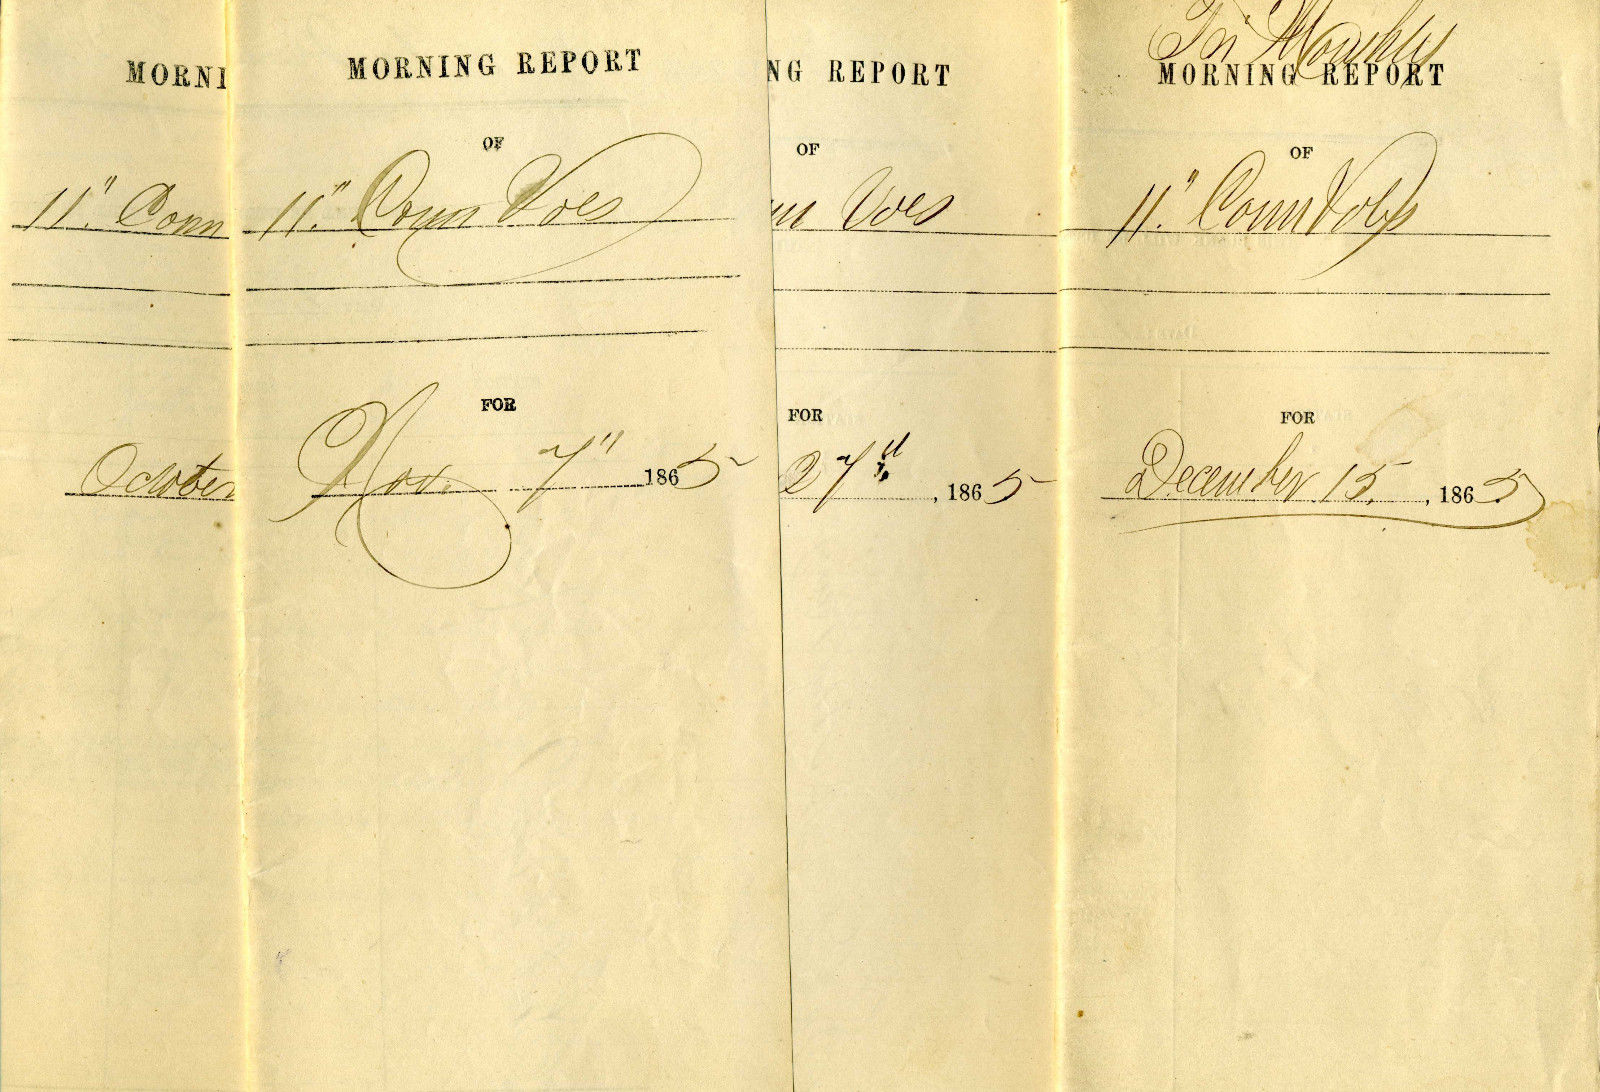 MORNI
11" Conn
October
MORNING REPORT
OF
11" Conn Vols
FOR
Nov. 7" 1865
NG REPORT
OF
nn Vols
FOR
27th, 1865
Tri Monthly
MORNING REPORT
OF
11" Conn Vols
FOR
December 15, 1865